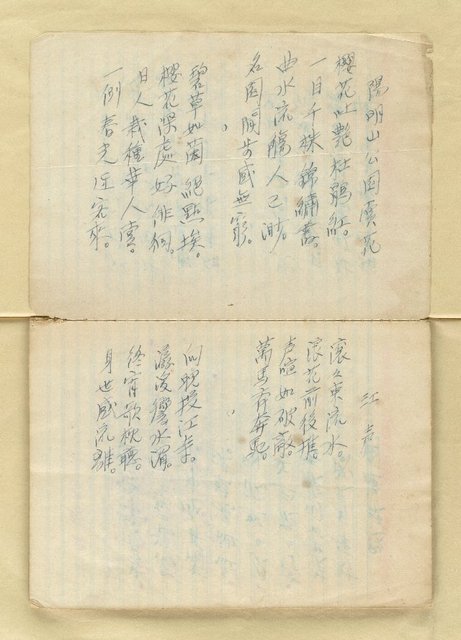 陽明山公園賞花
櫻花吐艷杜鵑紅。
一目千株錦繡
曲水流觴人已渺。
名園閒步感無窮。
碧草如茵絕點埃。
櫻花深處好徘徊。
日人栽種華人賞。
一例春光任客來。
江
滾々東流水。
浪花前後
聲喧如破敵。
萬馬齊奔馳。
向晚投江
潺湲響水湄。
終宵欹枕聽。
身世感流離。